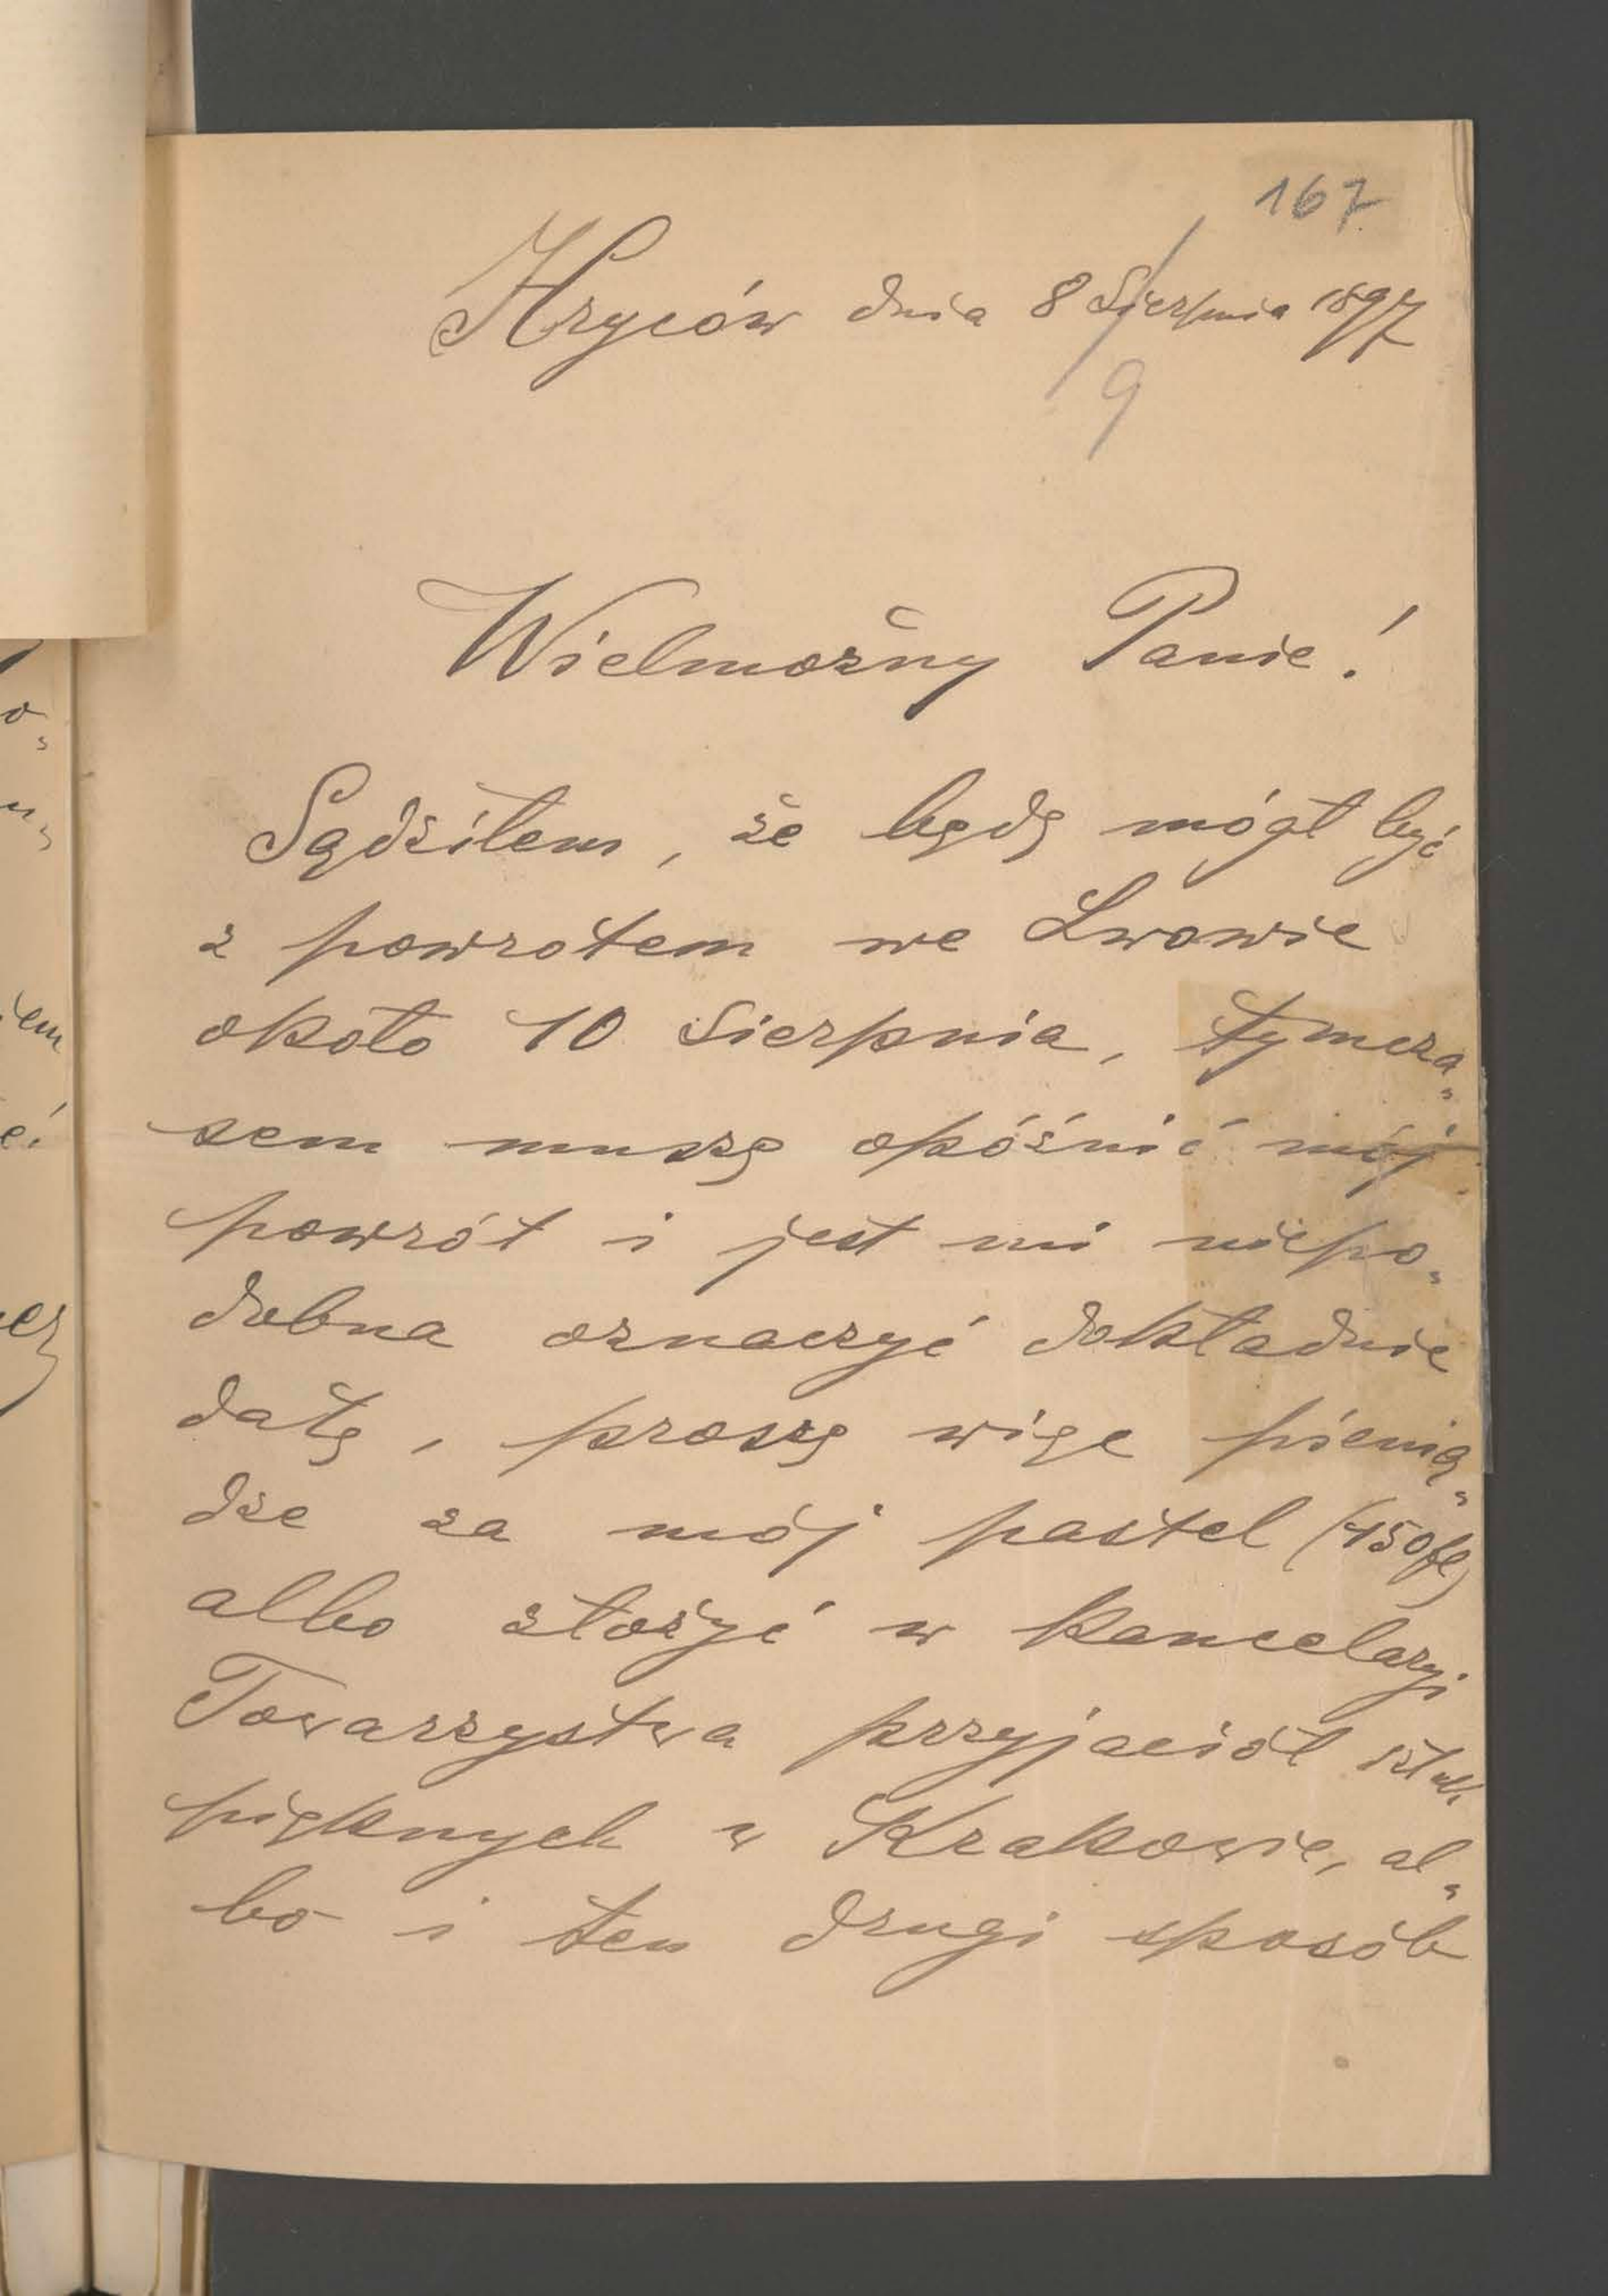 167
Hryców dnia 8 Sierpnia 1897
9
Wielmożny Panie!
Sądziłem, że będę mógł być
z powrotem we Lwowie
około 10 Sierpnia, tymcza=
sem muszę opóźnić mój
powrót i jest mi niepo=
dobna oznaczyć dokładnie
datę, proszę więc pienią=
dze za mój pastel (150 fl)
albo złożyć w kancelaryi
Towarzystwa przyjaciół sztuk
pięknych w Krakowie, al=
bo i ten drugi sposób